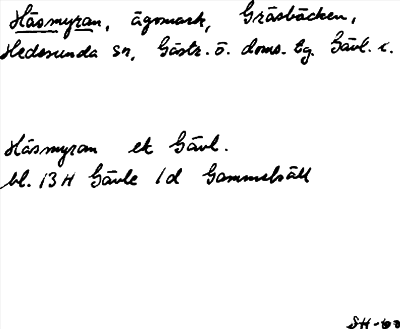 Häsmyran, ägomark, Gräsbäcken,
Hedesunda sn, Gästr. ö. doms. tg. Gävl. l.
Häsmyran ek Gävl.
bl. 13 H Gävle 1d Gammelsäll
SH-60